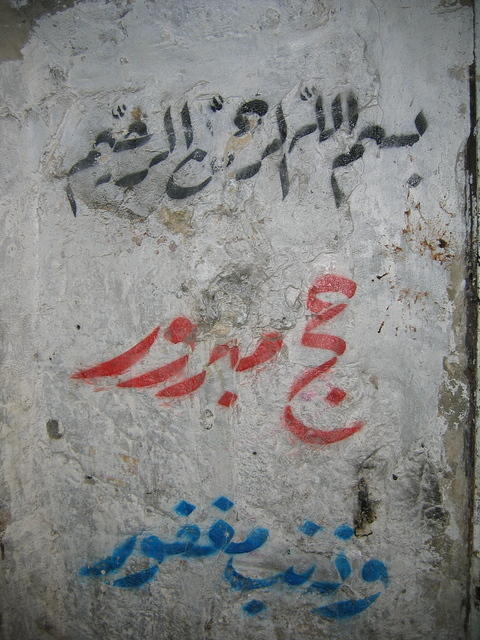 بسم الله الرحمن الرحيم
حج مبرور
وذنب مغفور